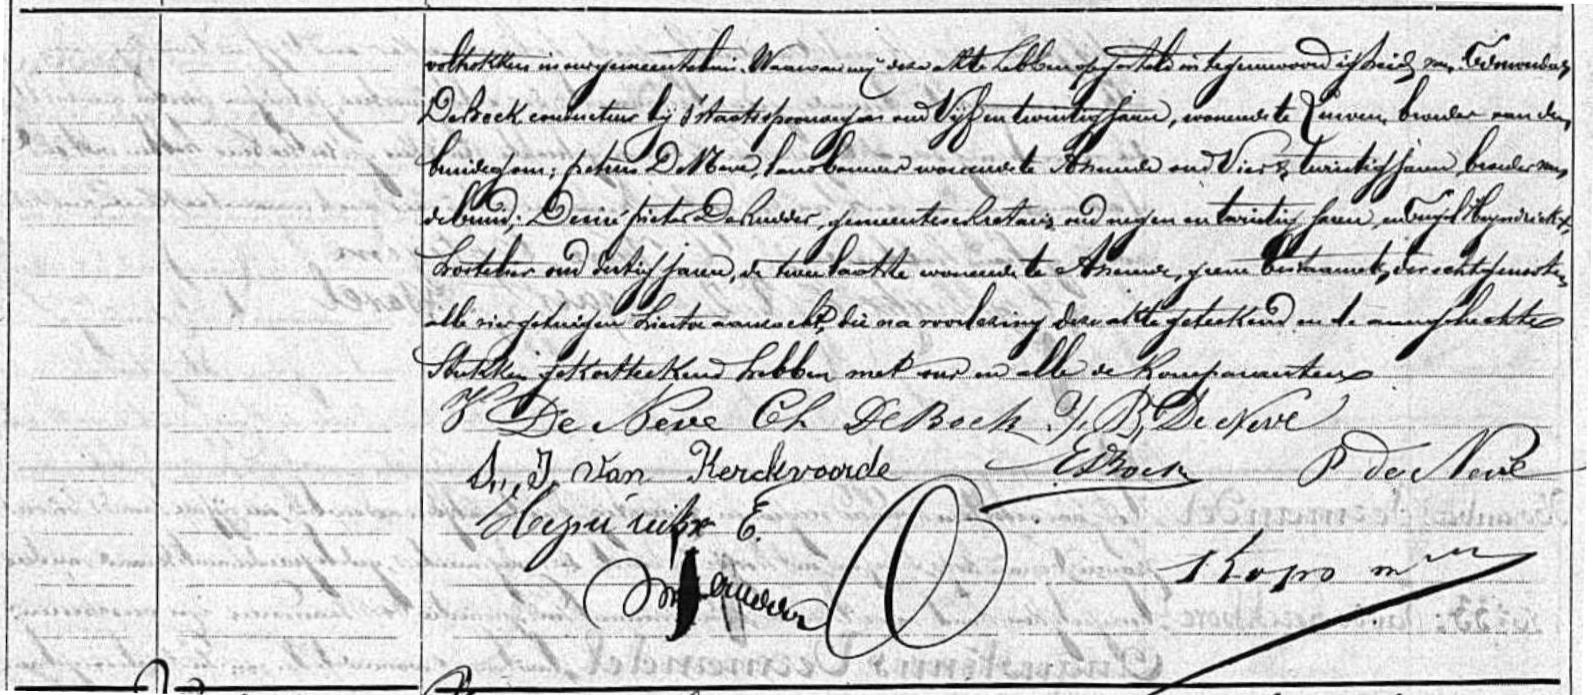 voltrokken in ons gemeentehuis. Waarvan wij deze akte hebben opgesteld in tegenwoordigheid van Edmondus
De Bock conducteur bij s'staatsspoorwegen oud Vijf en twintig jaren, wonende te Leuven, broeder van den
bruidegom; petrus De Neve, landbouwer wonende te Assenede oud Vier & twintig jaren broeder van
de bruid; Desiré pieter De Rudder, gemeentesekretaris oud negen en twintig jaren, en Heyndrickx,
hostelier oud dertig jaren, de twee laatste wonende te Assenede, geene bestaanden, der echtgenoten
alle vier getuigen hiertoe aanzocht, die na voorlezing deze akte geteekend en de aangehechte
Stukken gekortteekend hebben met ons en alle de komparanten
V De Neve Ch De Bock J, B, De Neve
J. Van Kerckvoorde EDBock P de Neve
E.